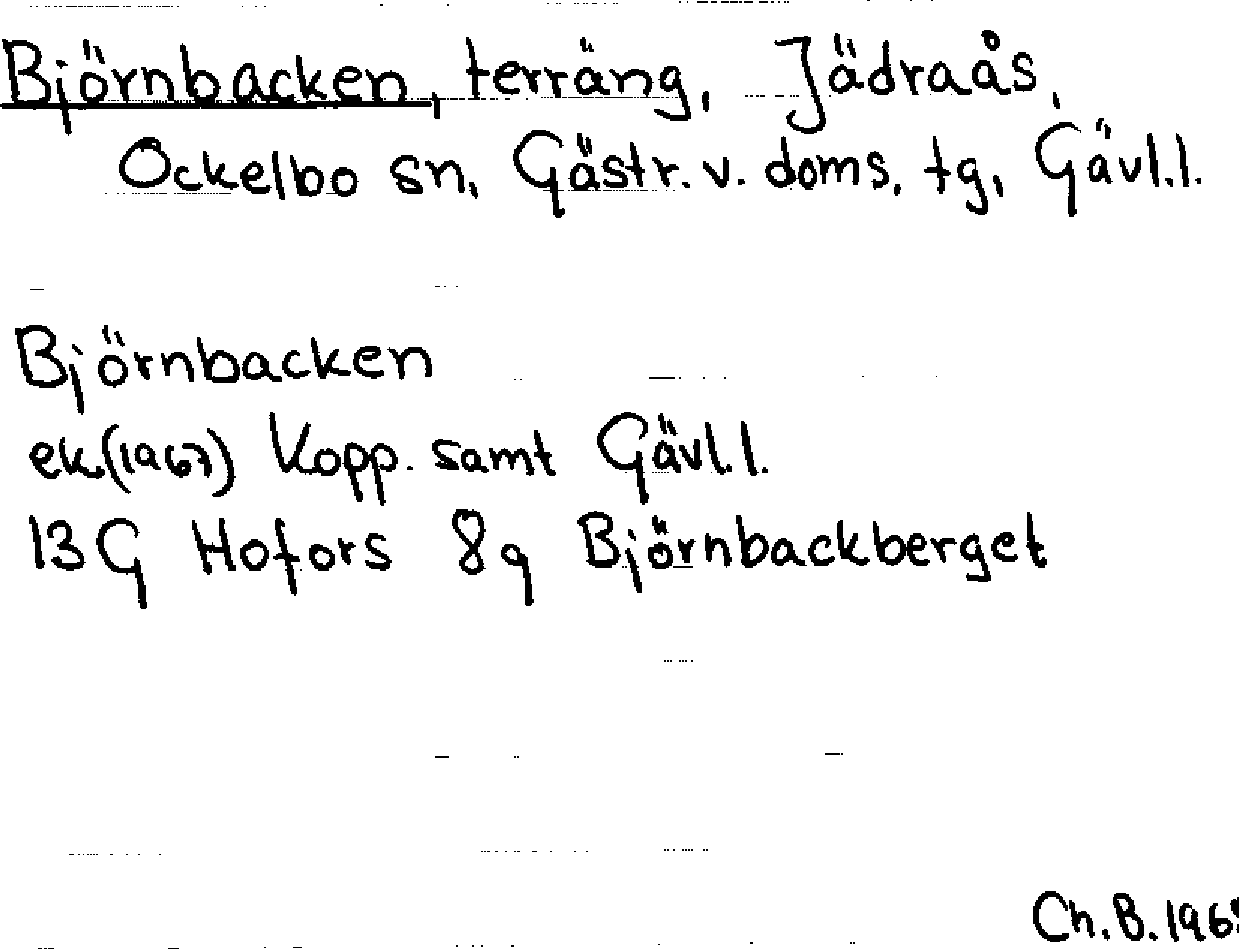 Björnbacken, terräng, Jädraås,
Ockelbo sn, Gästr. v. doms. tg, Gävl.l.
Björnbacken
ek(1967) Kopp. samt Gävl.l.
13G Hofors 8g Björnbackberget
Ch.B.